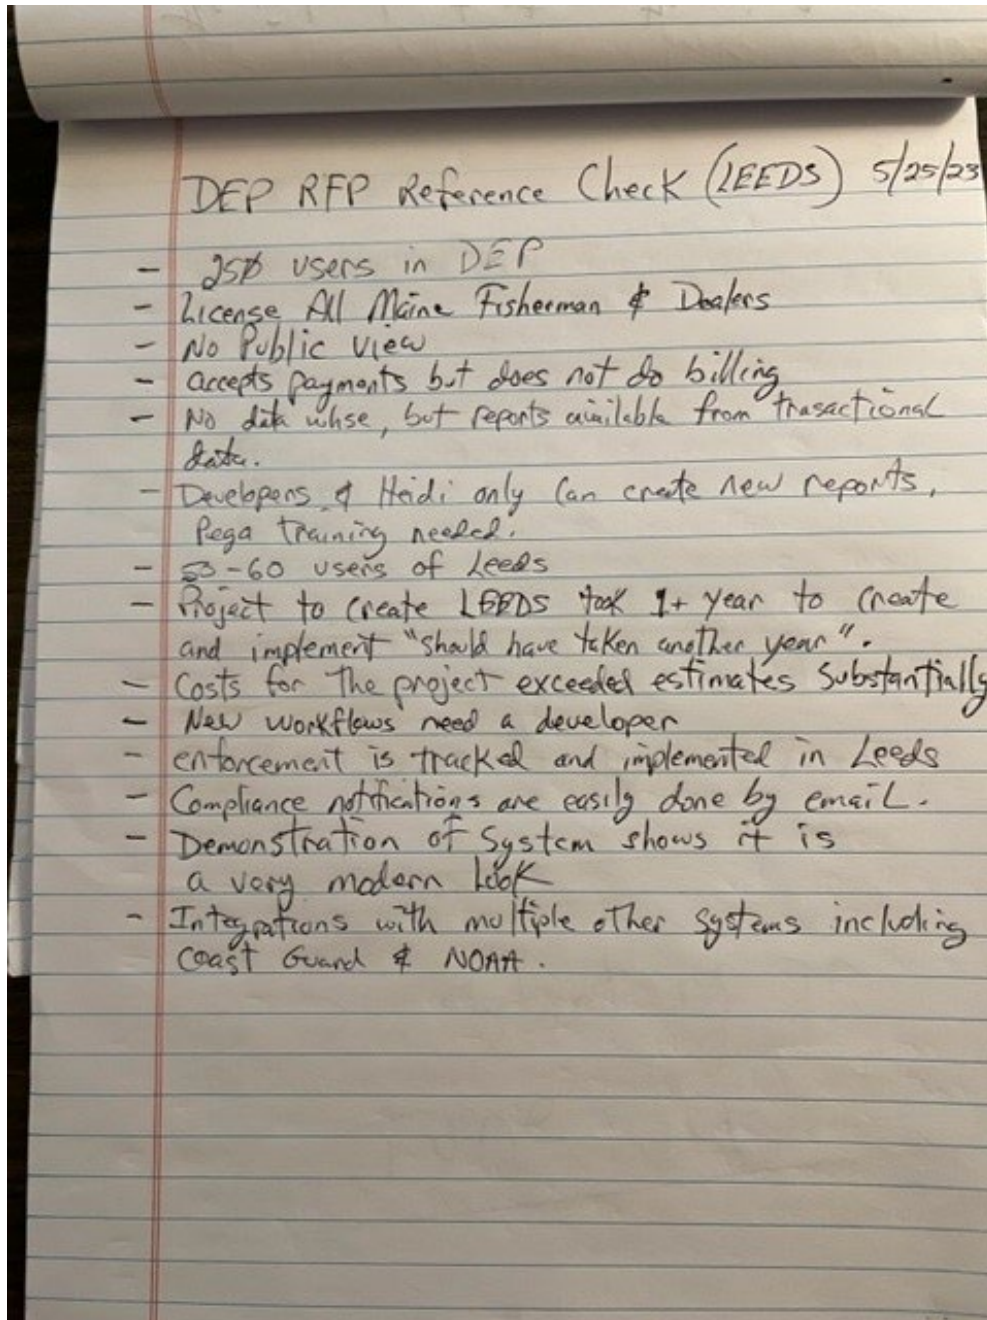 DEP RFP Reference Check (LEEDS) 5/25/23
- 250 users in DEP
- License All Maine Fisherman & Dealers
- No Public view
- accepts payments but does not do billing
- No data whse, but reports available from trasactional
data.
- Developers & Heidi only can create new reports,
Pega training needed.
- 50-60 users of Leeds
- Project to create LEEDS took 1+ year to create
and implement "should have taken another year".
- Costs for the project exceeded estimates substantially
- New workflows need a developer
- enforcement is tracked and implemented in Leeds
- Compliance notifications are easily done by email.
- Demonstration of System shows it is
a very modern look
- Integrations with multiple other systems including
Coast Guard & NOAA.